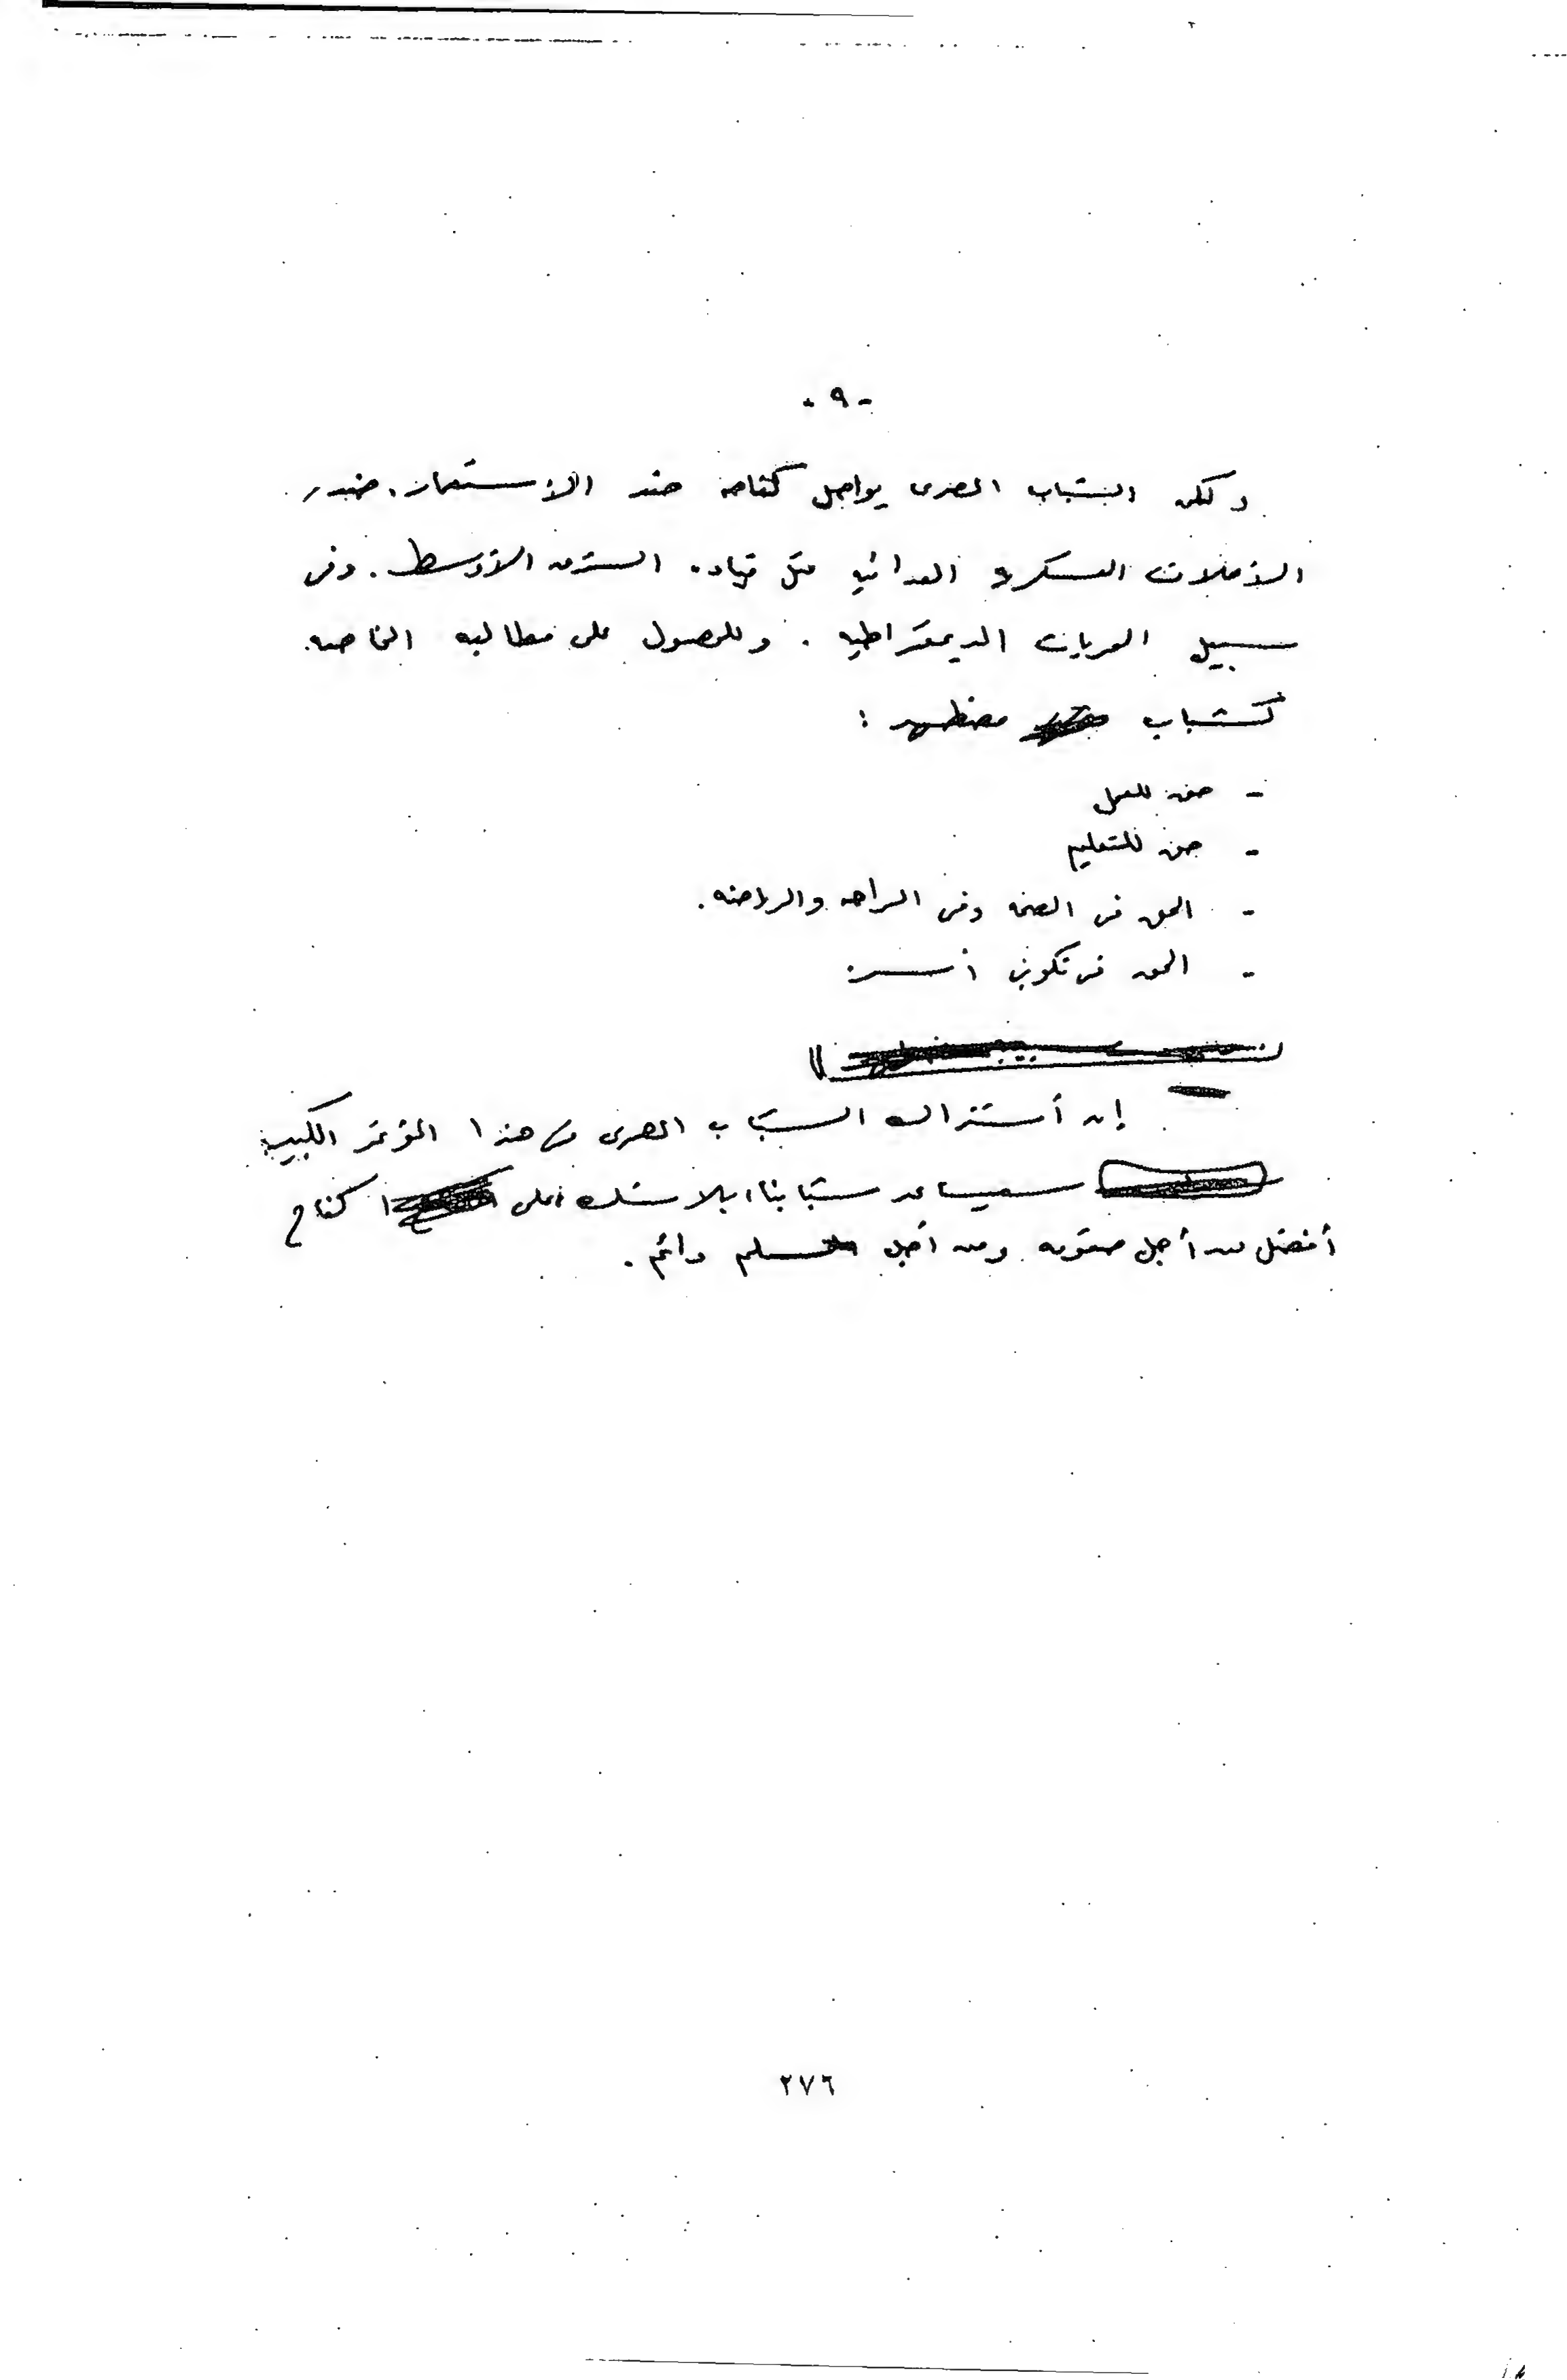 - ٩ -
ولكن الشباب المصرى يواصل كفاحه ضد الإستعمار. ضد
الأحلاف العسكرية العدائيه مثل قياده الشرق الأوسط. وفى
سبيل الحريات الديمقراطيه. وللحصول على مطالبه الخاصه
كشباب مضطهد :
- حقه للعمل
- حقه للتعليم
- الحق فى الصحه وفى الراحه والرياضه.
- الحق فى تكوين أسره
إن أشتراك الشباب المصرى فى هذا المؤتمر الكبير
سيساعد شبابنا بلا شك على كفاح
أفضل من أجل حقوقه ومن أجل سلم دائم.
٢٧٦